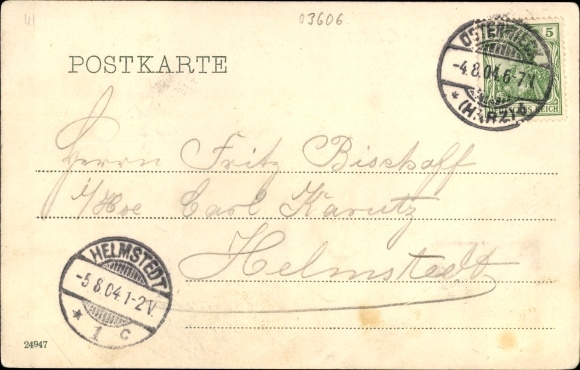 03606.
POSTKARTE
OSTERWIECK
-4.8.04.6-7N
* (HARZ) b
5
REICH
Herrn Fritz Bischoff
i/Hse Carl Karutz
Helmstedt
HELMSTEDT
-5 8.04.1-2V
* 1 c
24947